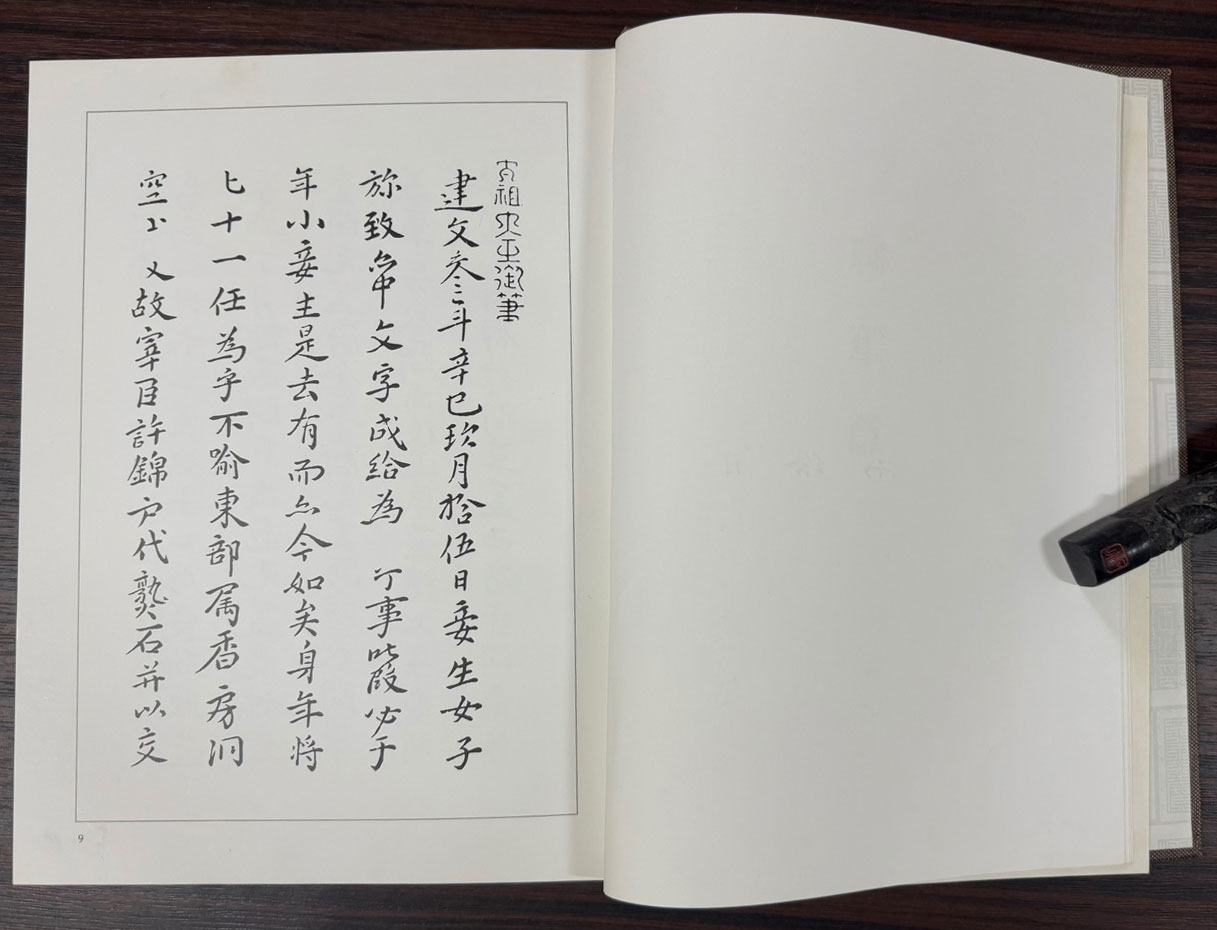 太祖大王御筆
建文叁年辛巳玖月拾伍日妾生女子
旀致亦中文字成給為事叱段必于
年小妾主是去有而亦今如矣身年將
七十一任為乎不喻東部属香房洞
空故宰臣許錦戶代熟石并以交
9